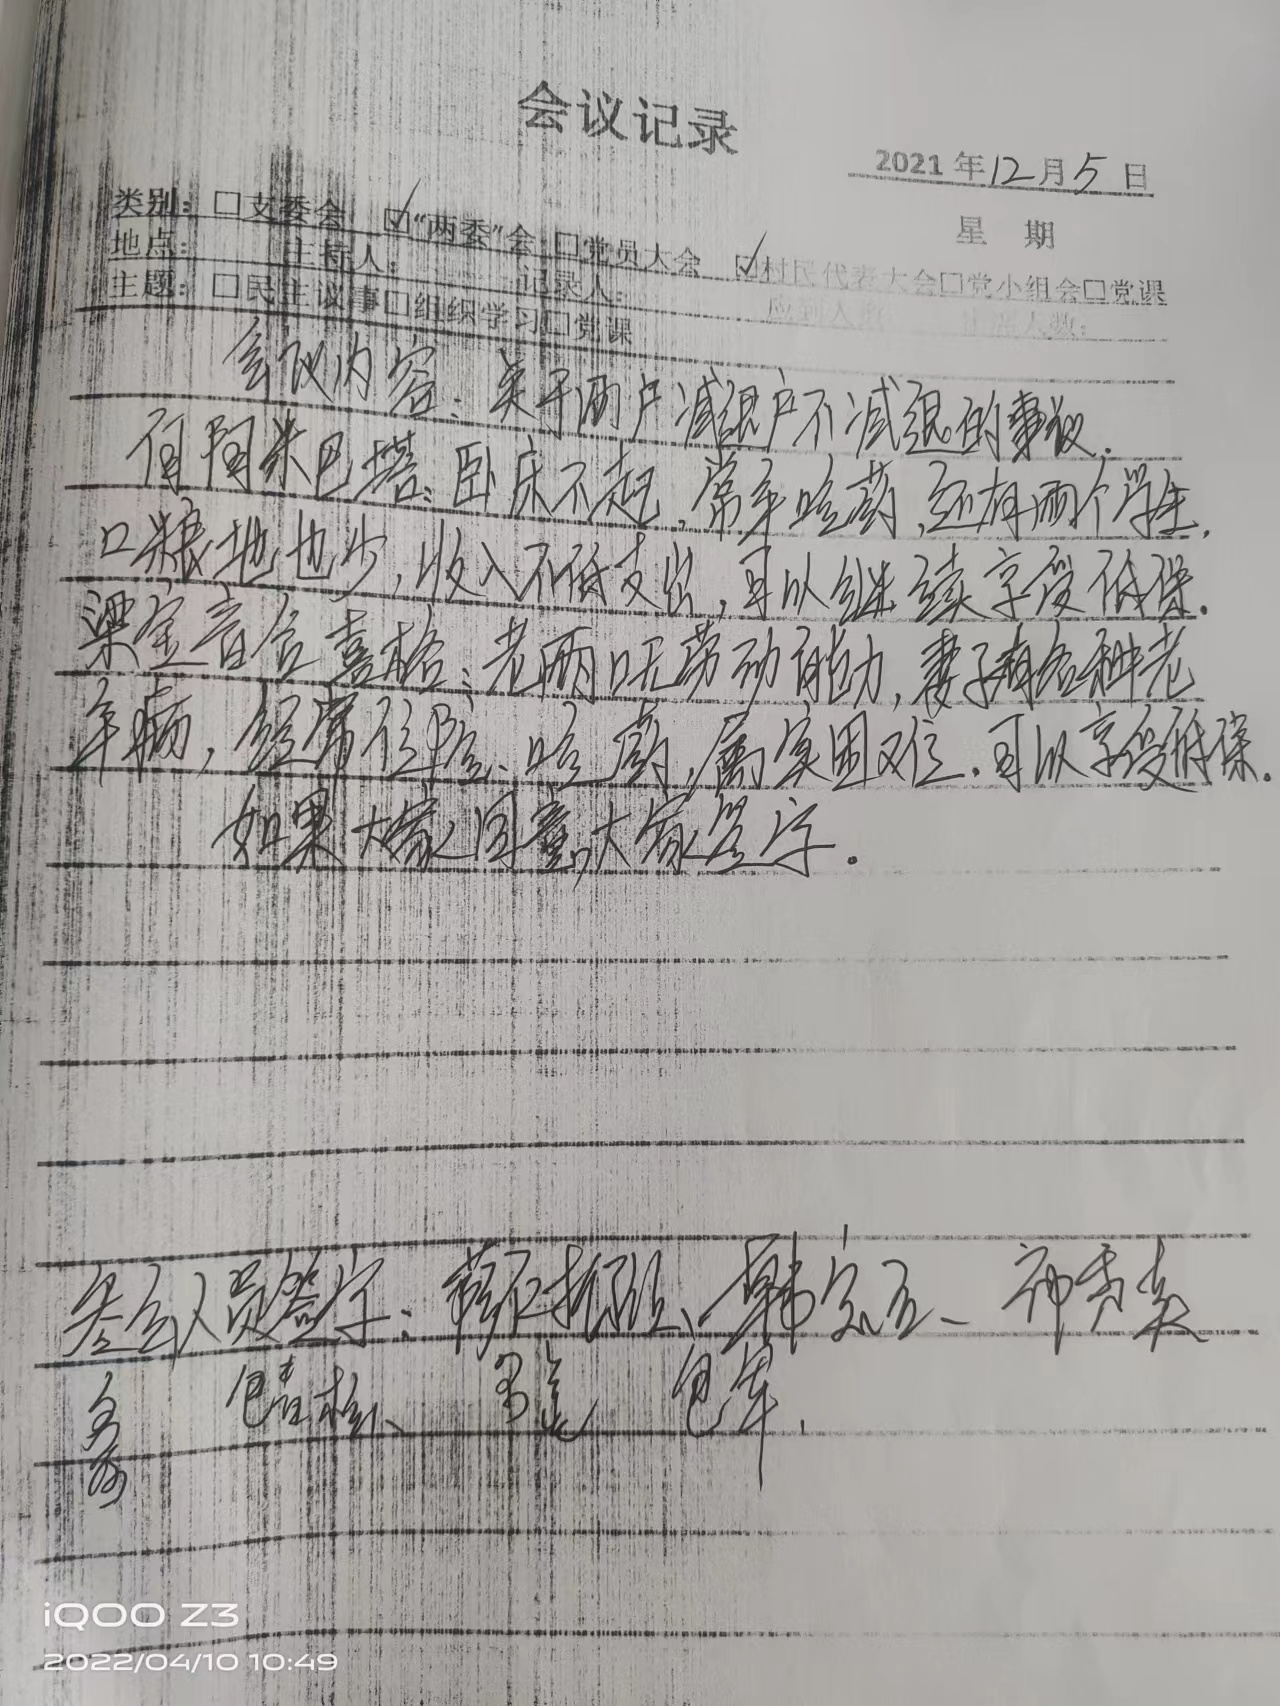 会议记录
2021年12月5日
星 期
类别：□支委会 ☑“两委”会 □党员大会 ☑村民代表大会□党小组会□党课
地点： 主持人： 记录人： 应到人数： 出席人数：
主题：□民主议事□组织学习□党课
会议内容：关于两户减退户不减退的事议.
阿米巴塔：卧床不起,常年吃药,还有两个学生,
口粮地也少,收入不低支出,可以继续享受低保.
梁宝音合喜格：老两口无劳动能力,妻子有各种老
年病,经常住院、吃药,属实困难.可以享受低保.
如果大家同意,大家签字.
参会人员签字： 韩宝五
包青格、 包军.
iQOO Z3
2022/04/10 10:49